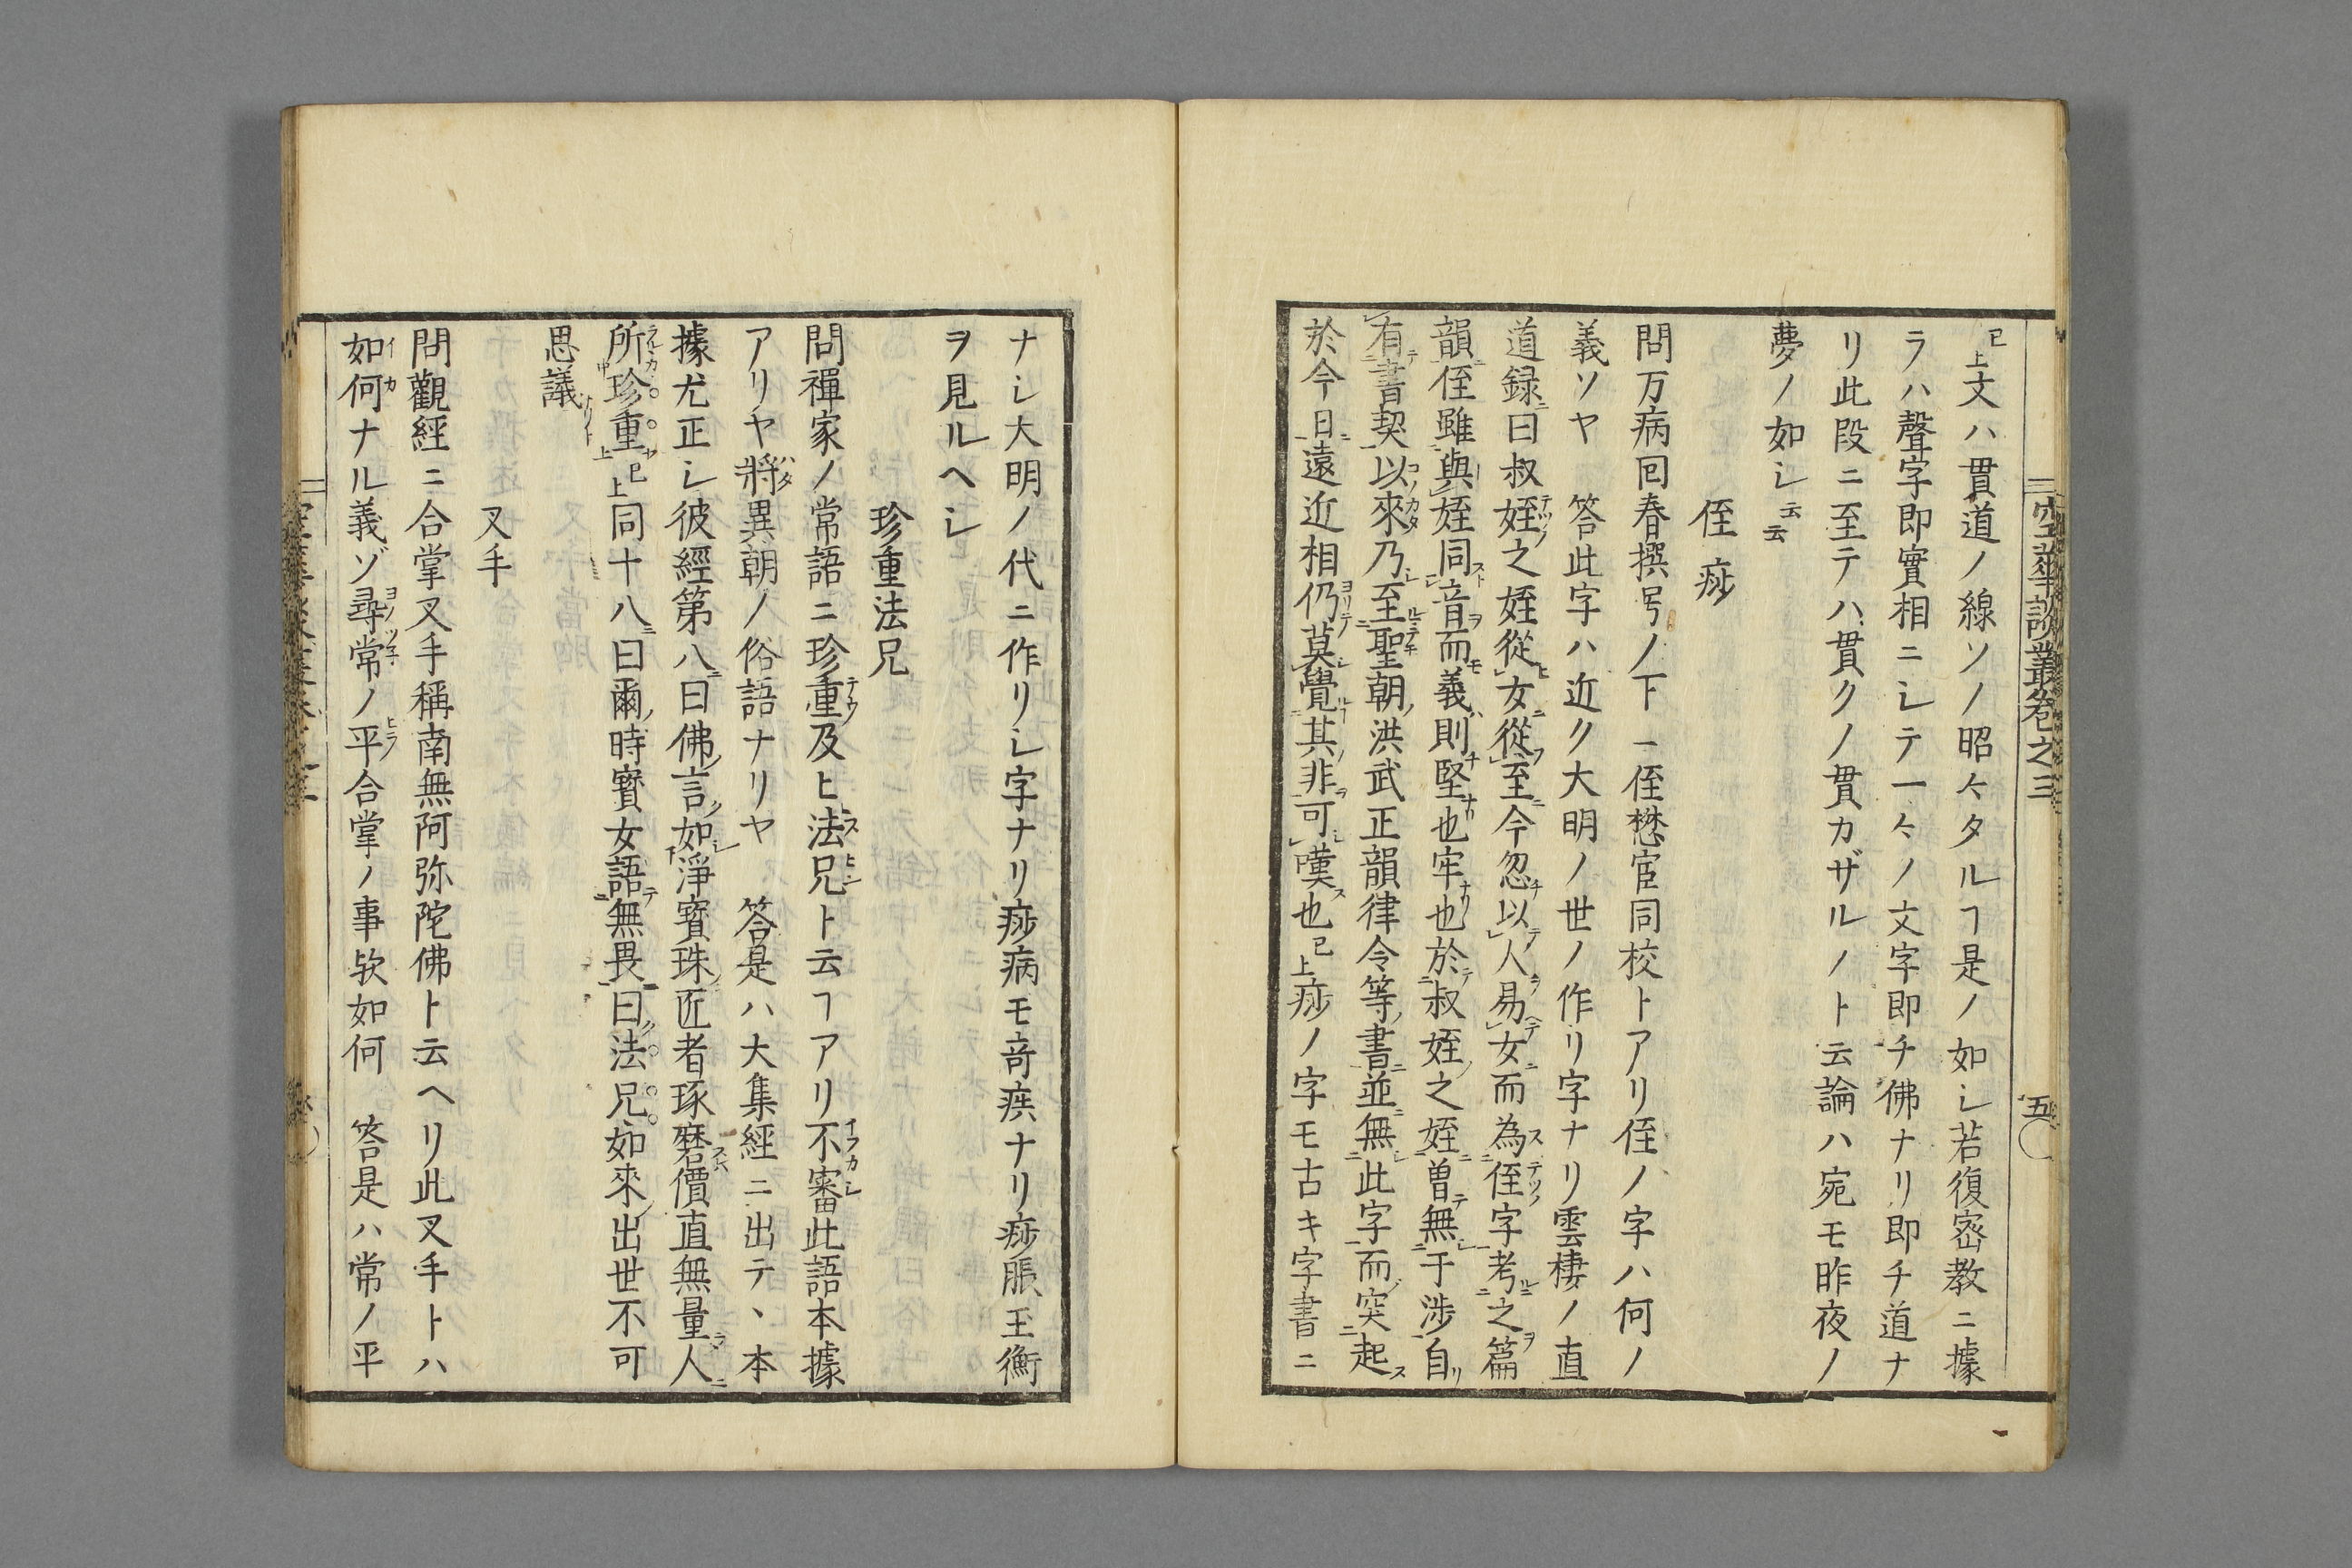 空華談叢卷之三
五
已上文ハ貫道ノ線ソノ昭々タルヿ是ノ如シ若復宻教ニ據
ラハ聲字即實相ニシテ一々ノ文字即チ佛ナリ即チ道ナ
リ此段ニ至テハ貫クノ貫カザルノト云論ハ宛モ昨夜ノ
夢ノ如シ云云
侄 痧
問万病回春撰号ノ下ニ侄懋宦同校トアリ侄ノ字ハ何ノ
義ソヤ 答此字ハ近ク大明ノ世ノ作リ字ナリ雲棲ノ直
道録曰叔姪之姪從女從至今忽以人易女而為侄字考之篇
韻侄雖與姪同音而義則堅也牢也於叔姪之姪曽無干涉自
有書契以來乃至聖朝洪武正韻律令等書並無此字而突起
於今日遠近相仍莫覺其非可嘆也已上痧ノ字モ古キ字書ニ
ナシ大明ノ代ニ作リシ字ナリ痧病モ竒疾ナリ痧脹玉衡
ヲ見ルヘシ
珍重法兄
問禪家ノ常語ニ珍重及ヒ法兄ト云ヿアリ不審此語本據
アリヤ將異朝ノ俗語ナリヤ 答是ハ大集經ニ出テヽ本
據尤正シ彼經第八曰佛言如淨寳珠匠者琢磨價直無量人
所珍重已上同十八曰爾時寳女語無畏曰法兄如來出世不可
思議
叉手
問觀經ニ合掌叉手稱南無阿弥陀佛ト云ヘリ此叉手トハ
如何ナル義ゾ尋常ノ平合掌ノ事欤如何 答是ハ常ノ平